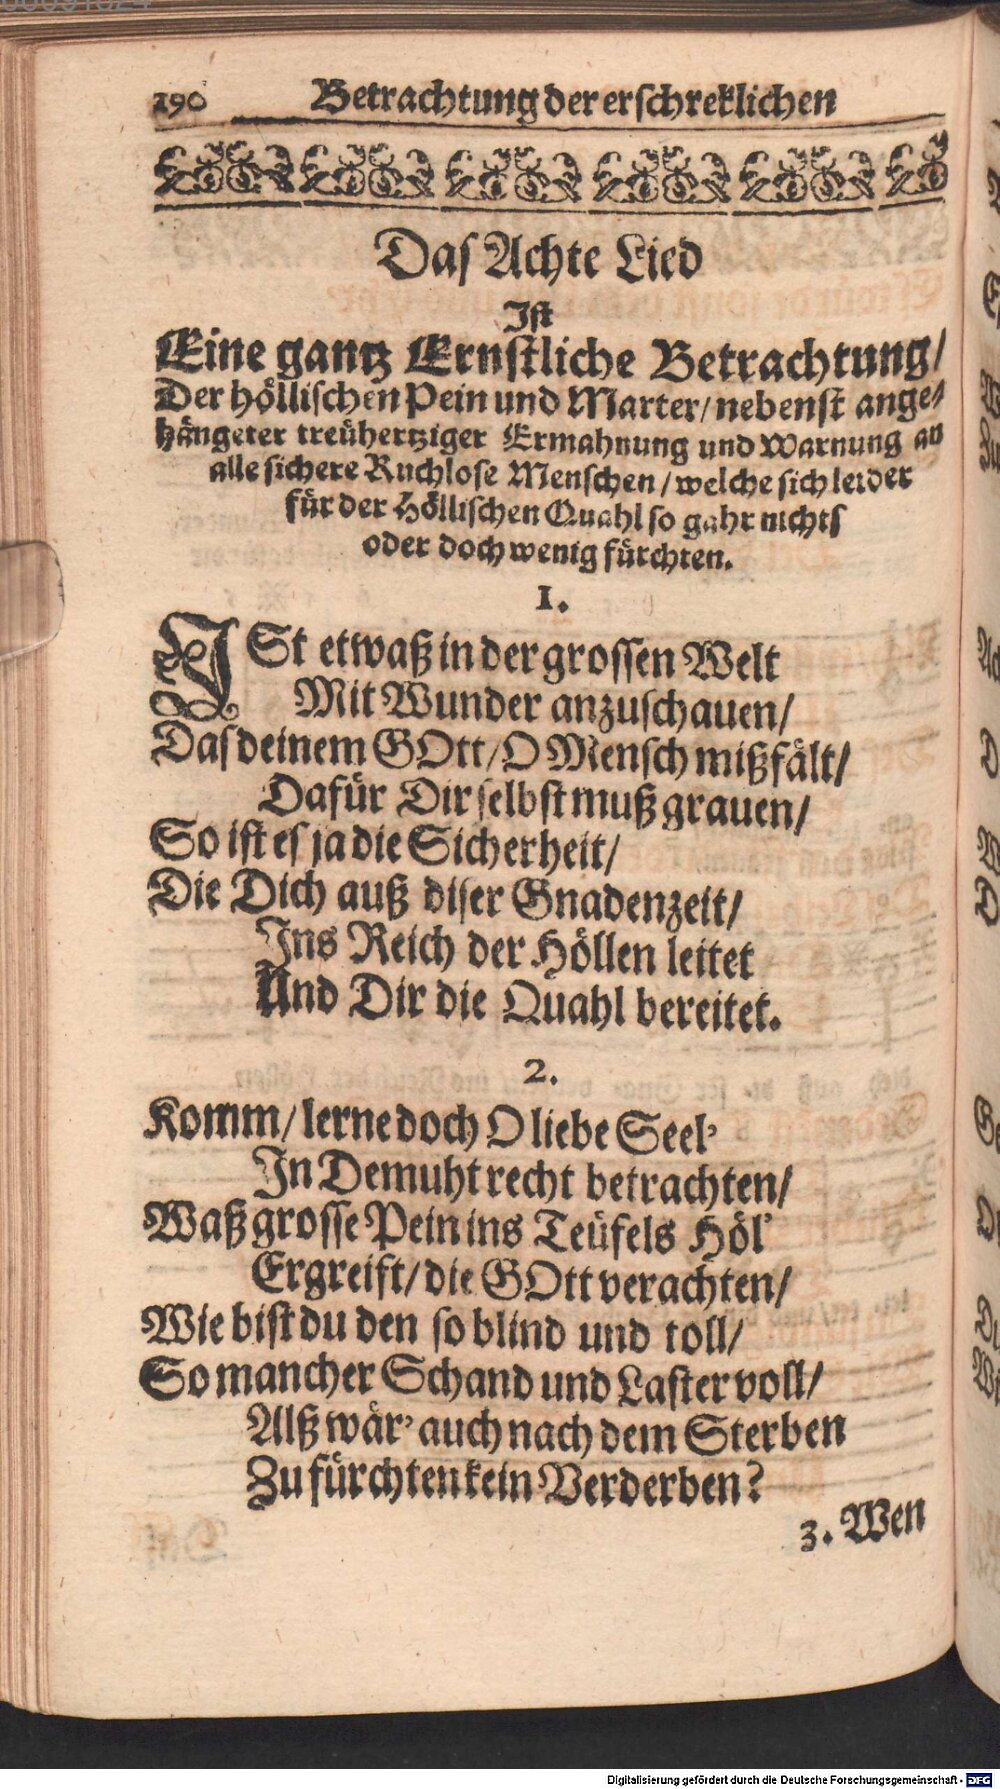 190 Betrachtung der erschreklichen
Das Achte Lied
Ist
Eine gantz Ernstliche Betrachtung/
Der höllischen Pein und Marter/ nebenst ange-
hängeter treühertziger Ermahnung und Warnung an
alle sichere Ruchlose Menschen/ welche sich leider
für der Höllischen Quahl so gahr nichts
oder doch wenig fürchten.
1.
ISt etwaß in der grossen Welt
Mit Wunder anzuschauen/
Das deinem GOtt/ O Mensch mißfält/
Dafür Dir selbst muß grauen/
So ist es ja die Sicherheit/
Die Dich auß diser Gnadenzeit/
Ins Reich der Höllen leitet
Und Dir die Quahl bereitet.
2.
Komm/ lerne doch O liebe Seel'
In Demuht recht betrachten/
Waß grosse Pein ins Teüfels Höl'
Ergreift/ die GOtt verachten/
Wie bist du den so blind und toll/
So mancher Schand und Laster voll/
Alß wär' auch nach dem Sterben
Zu fürchten kein Verderben?
3. Wen
Digitalisierung gefördert durch die Deutsche Forschungsgemeinschaft - DFG